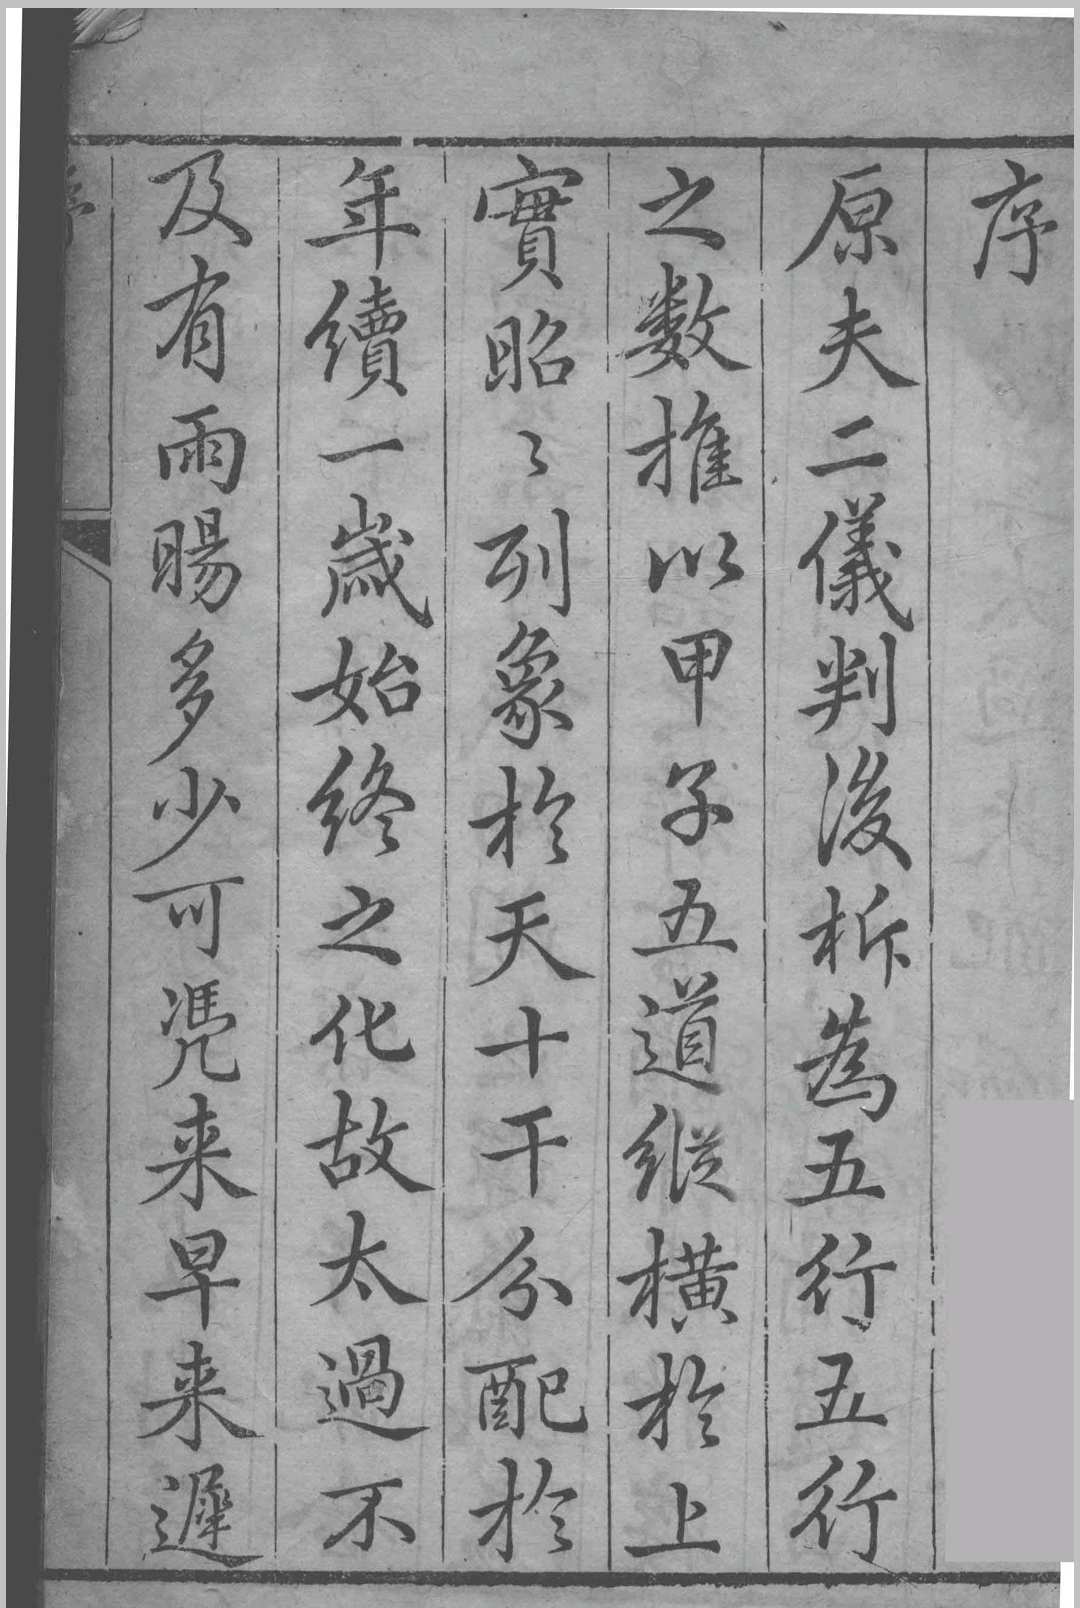 序
原夫二儀判後柝為五行五行
之数推以甲子五道縱橫於上
實昭〻列象於天十干分配於
年續一歲始終之化故太過不
及有雨暘多少可凴来早来遲